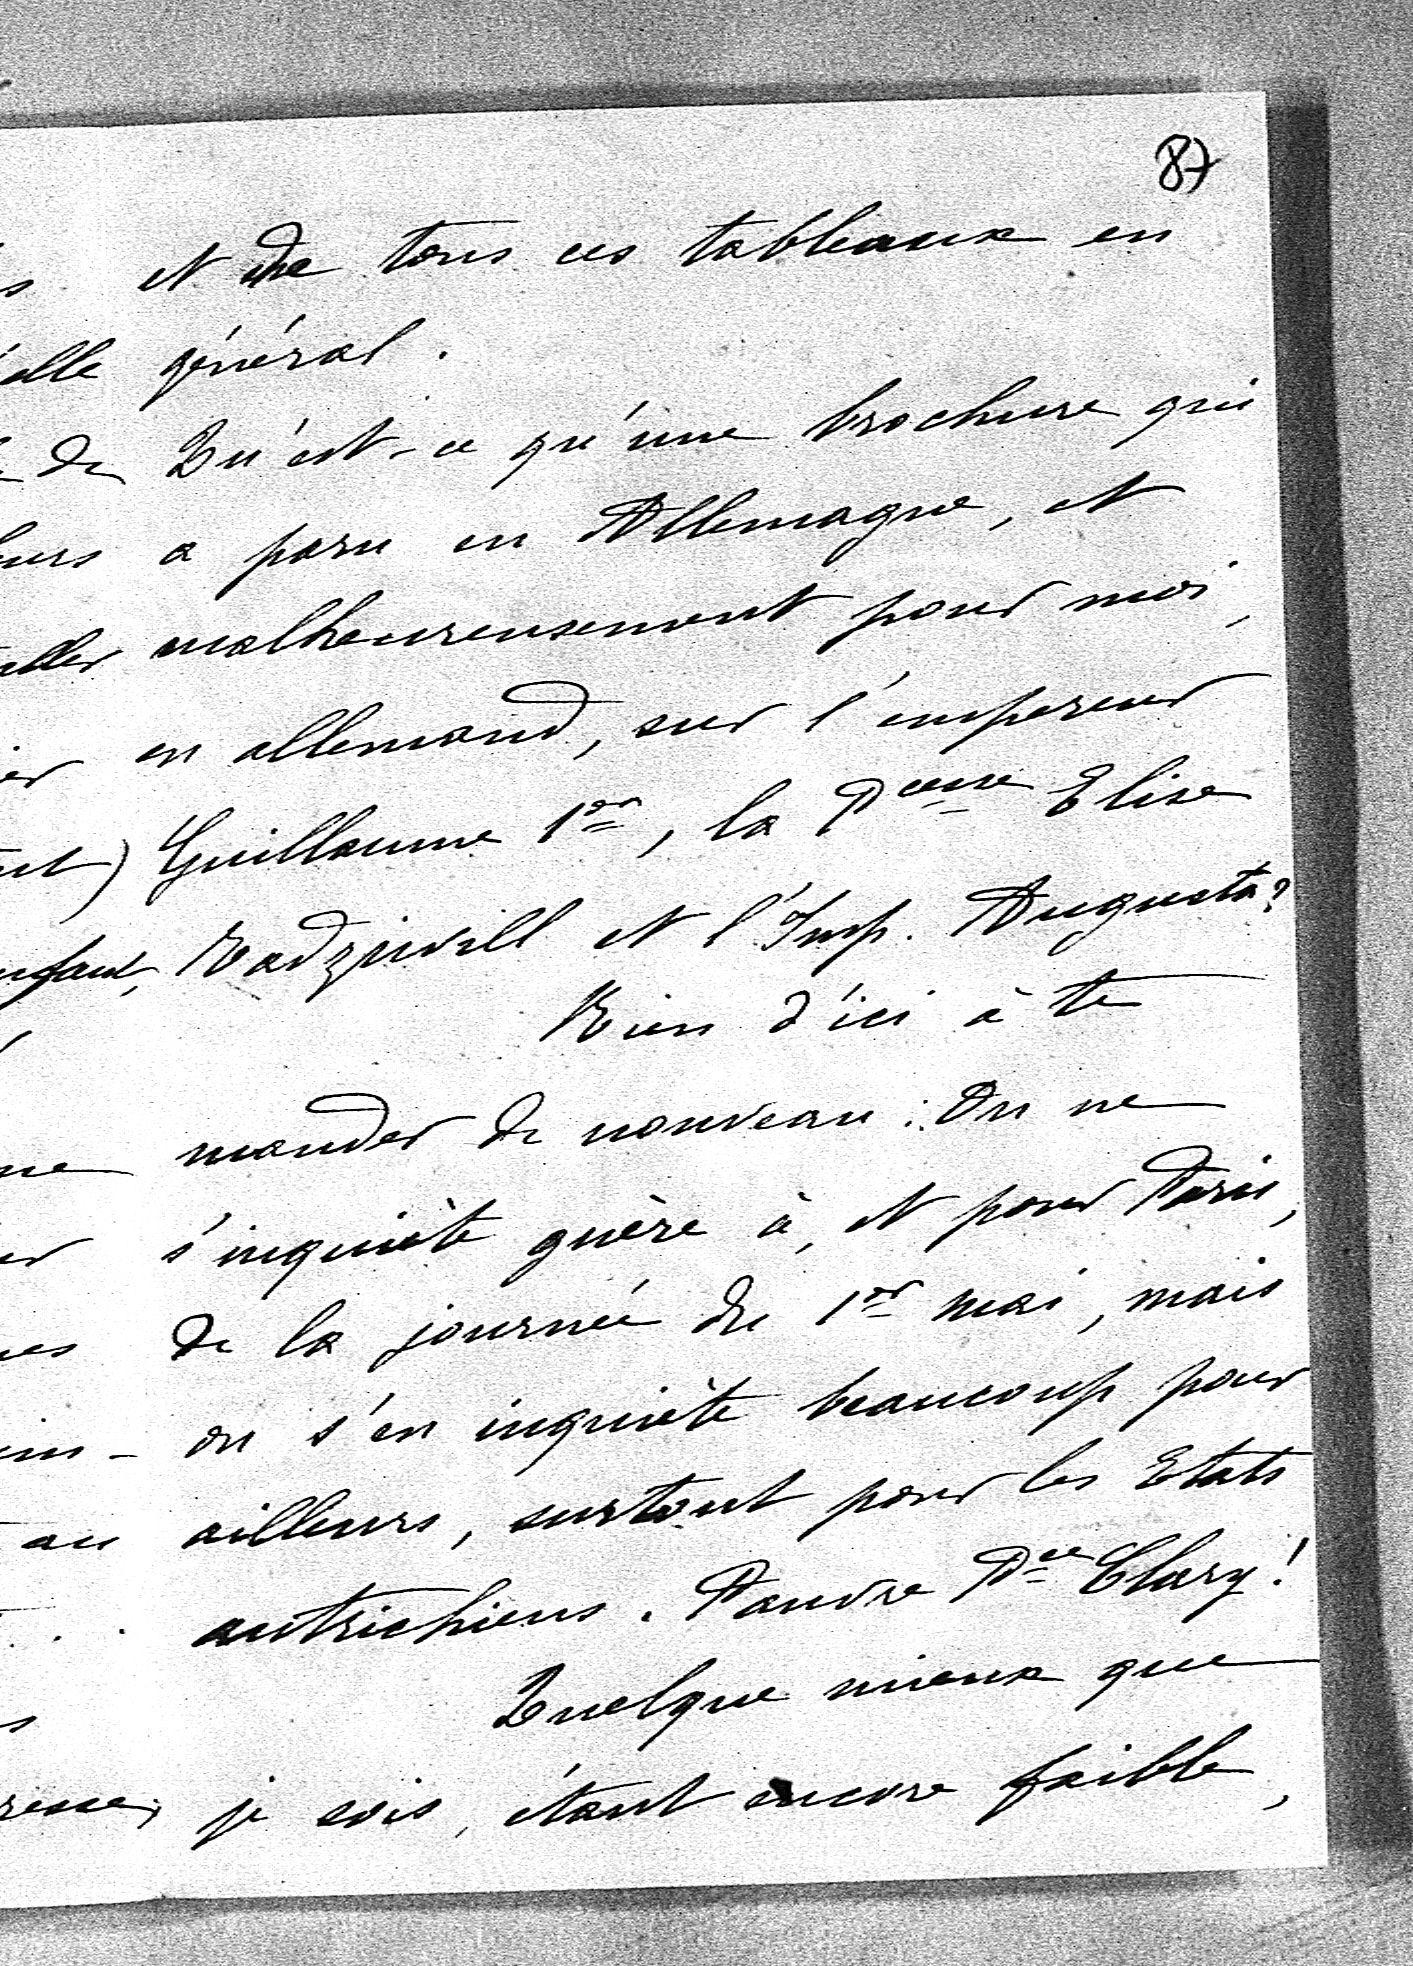 87
et de tous ces tableaux en
général.
Qu'est-ce qu'une brochure qui
a paru en Allemagne, et
malheureusement pour moi,
en allemand, sur l'empereur
Guillaume 1er, la Pcesse Elise
Radziwill et l'Imp. Augusta?
Rien d'ici à te
mander de nouveau : On ne
s'inquiète guère à, et pour Paris,
de la journée du 1er mai, mais
on s'en inquiète beaucoup pour
ailleurs, surtout pour les Etats
autrichiens. Pauvre Pce Clary!
Quelque mieux que
je sois, étant encore faible,